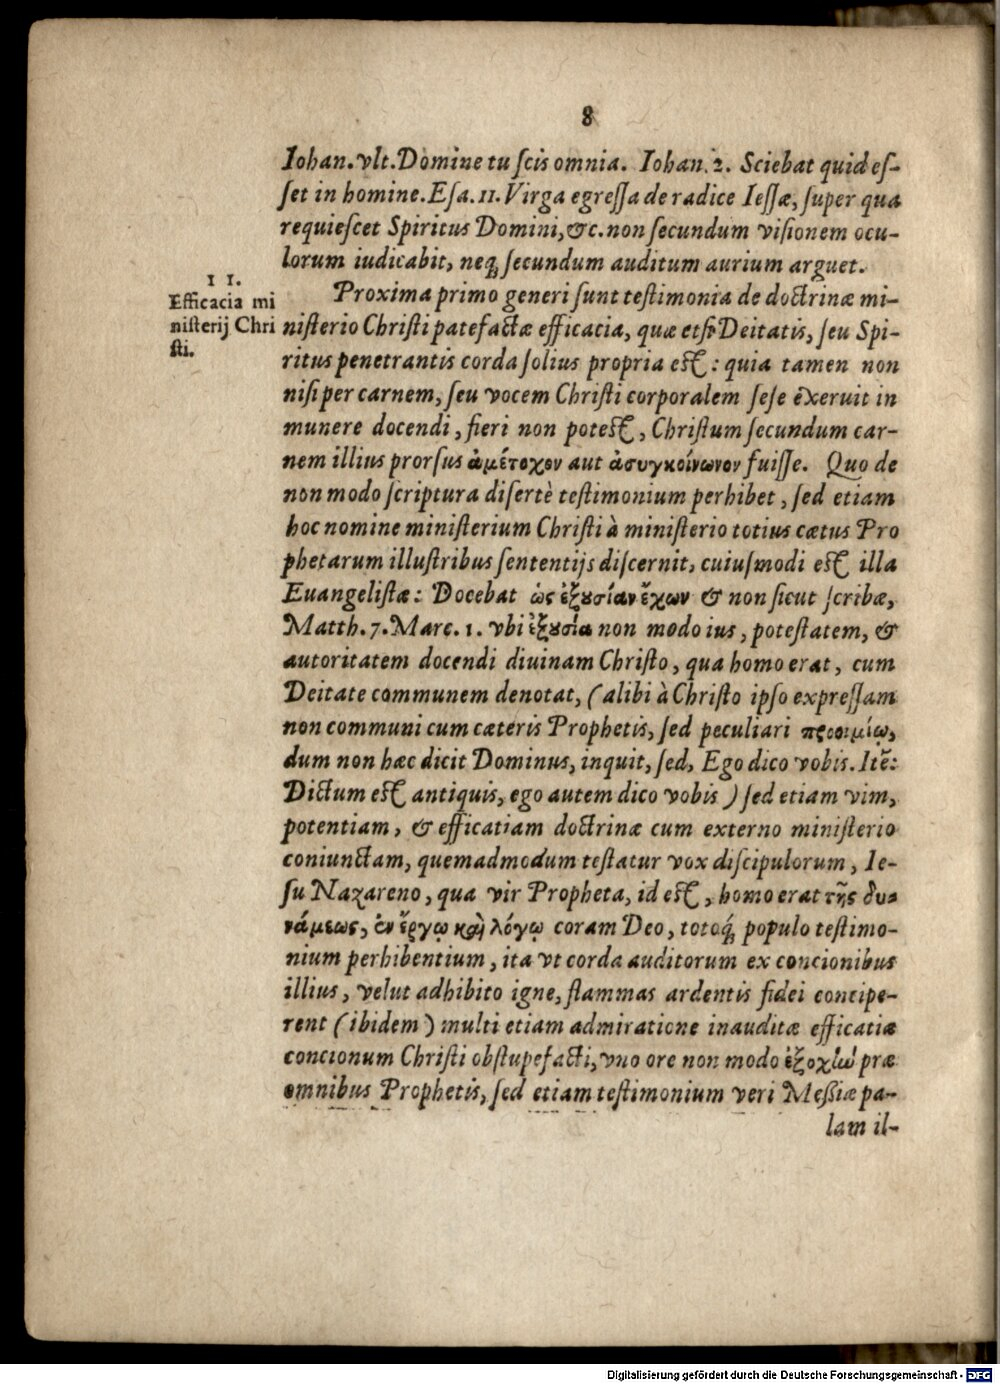 8
Iohan. vlt. Domine tu ſcis omnia. Iohan. 2. Sciebat quid eſ-
ſet in homine. Eſa. 11. Virga egreſſa de radice Ieſſæ, ſuper qua
requieſcet Spiritus Domini, &c. non ſecundum viſionem ocu-
lorum iudicabit, neq; ſecundum auditum aurium arguet.
11.
Efficacia mi
niſterij Chri
ſti.
Proxima primo generi ſunt teſtimonia de doctrinæ mi-
niſterio Chriſti patefactæ efficacia, quæ etſi Deitatis, ſeu Spi-
ritus penetrantis corda ſolius propria eſt: quia tamen non
niſi per carnem, ſeu vocem Chriſti corporalem ſeſe exeruit in
munere docendi, fieri non poteſt, Chriſtum ſecundum car-
nem illius prorſus ἀμέτοχον aut ἀσυγκοίνωνον fuiſſe. Quo de
non modo ſcriptura diſertè teſtimonium perhibet, ſed etiam
hoc nomine miniſterium Chriſti à miniſterio totius cœtus Pro
phetarum illuſtribus ſententijs diſcernit, cuiuſmodi eſt illa
Euangeliſtæ: Docebat ὡς ἐξουσίαν ἔχων & non ſicut ſcribæ,
Matth. 7. Marc. 1. vbi ἐξουσία non modo ius, poteſtatem, &
autoritatem docendi diuinam Chriſto, qua homo erat, cum
Deitate communem denotat, (alibi à Chriſto ipſo expreſſam
non communi cum cæteris Prophetis, ſed peculiari προοιμίῳ,
dum non hæc dicit Dominus, inquit, ſed, Ego dico vobis. Itē:
Dictum eſt antiquis, ego autem dico vobis) ſed etiam vim,
potentiam, & efficatiam doctrinæ cum externo miniſterio
coniunctam, quemadmodum teſtatur vox diſcipulorum, Ie-
ſu Nazareno, qua vir Propheta, id eſt, homo erat τῆς δυ-
νάμεως, ἐν ἔργῳ καὶ λόγῳ coram Deo, totoq́; populo teſtimo-
nium perhibentium, ita vt corda auditorum ex concionibus
illius, velut adhibito igne, flammas ardentis fidei concipe-
rent (ibidem) multi etiam admiratione inauditæ efficatiæ
concionum Chriſti obſtupefacti, vno ore non modo ἐξοχὴν præ
omnibus Prophetis, ſed etiam teſtimonium veri Meßiæ pa-
lam il-
Digitalisierung gefördert durch die Deutsche Forschungsgemeinschaft - DFG